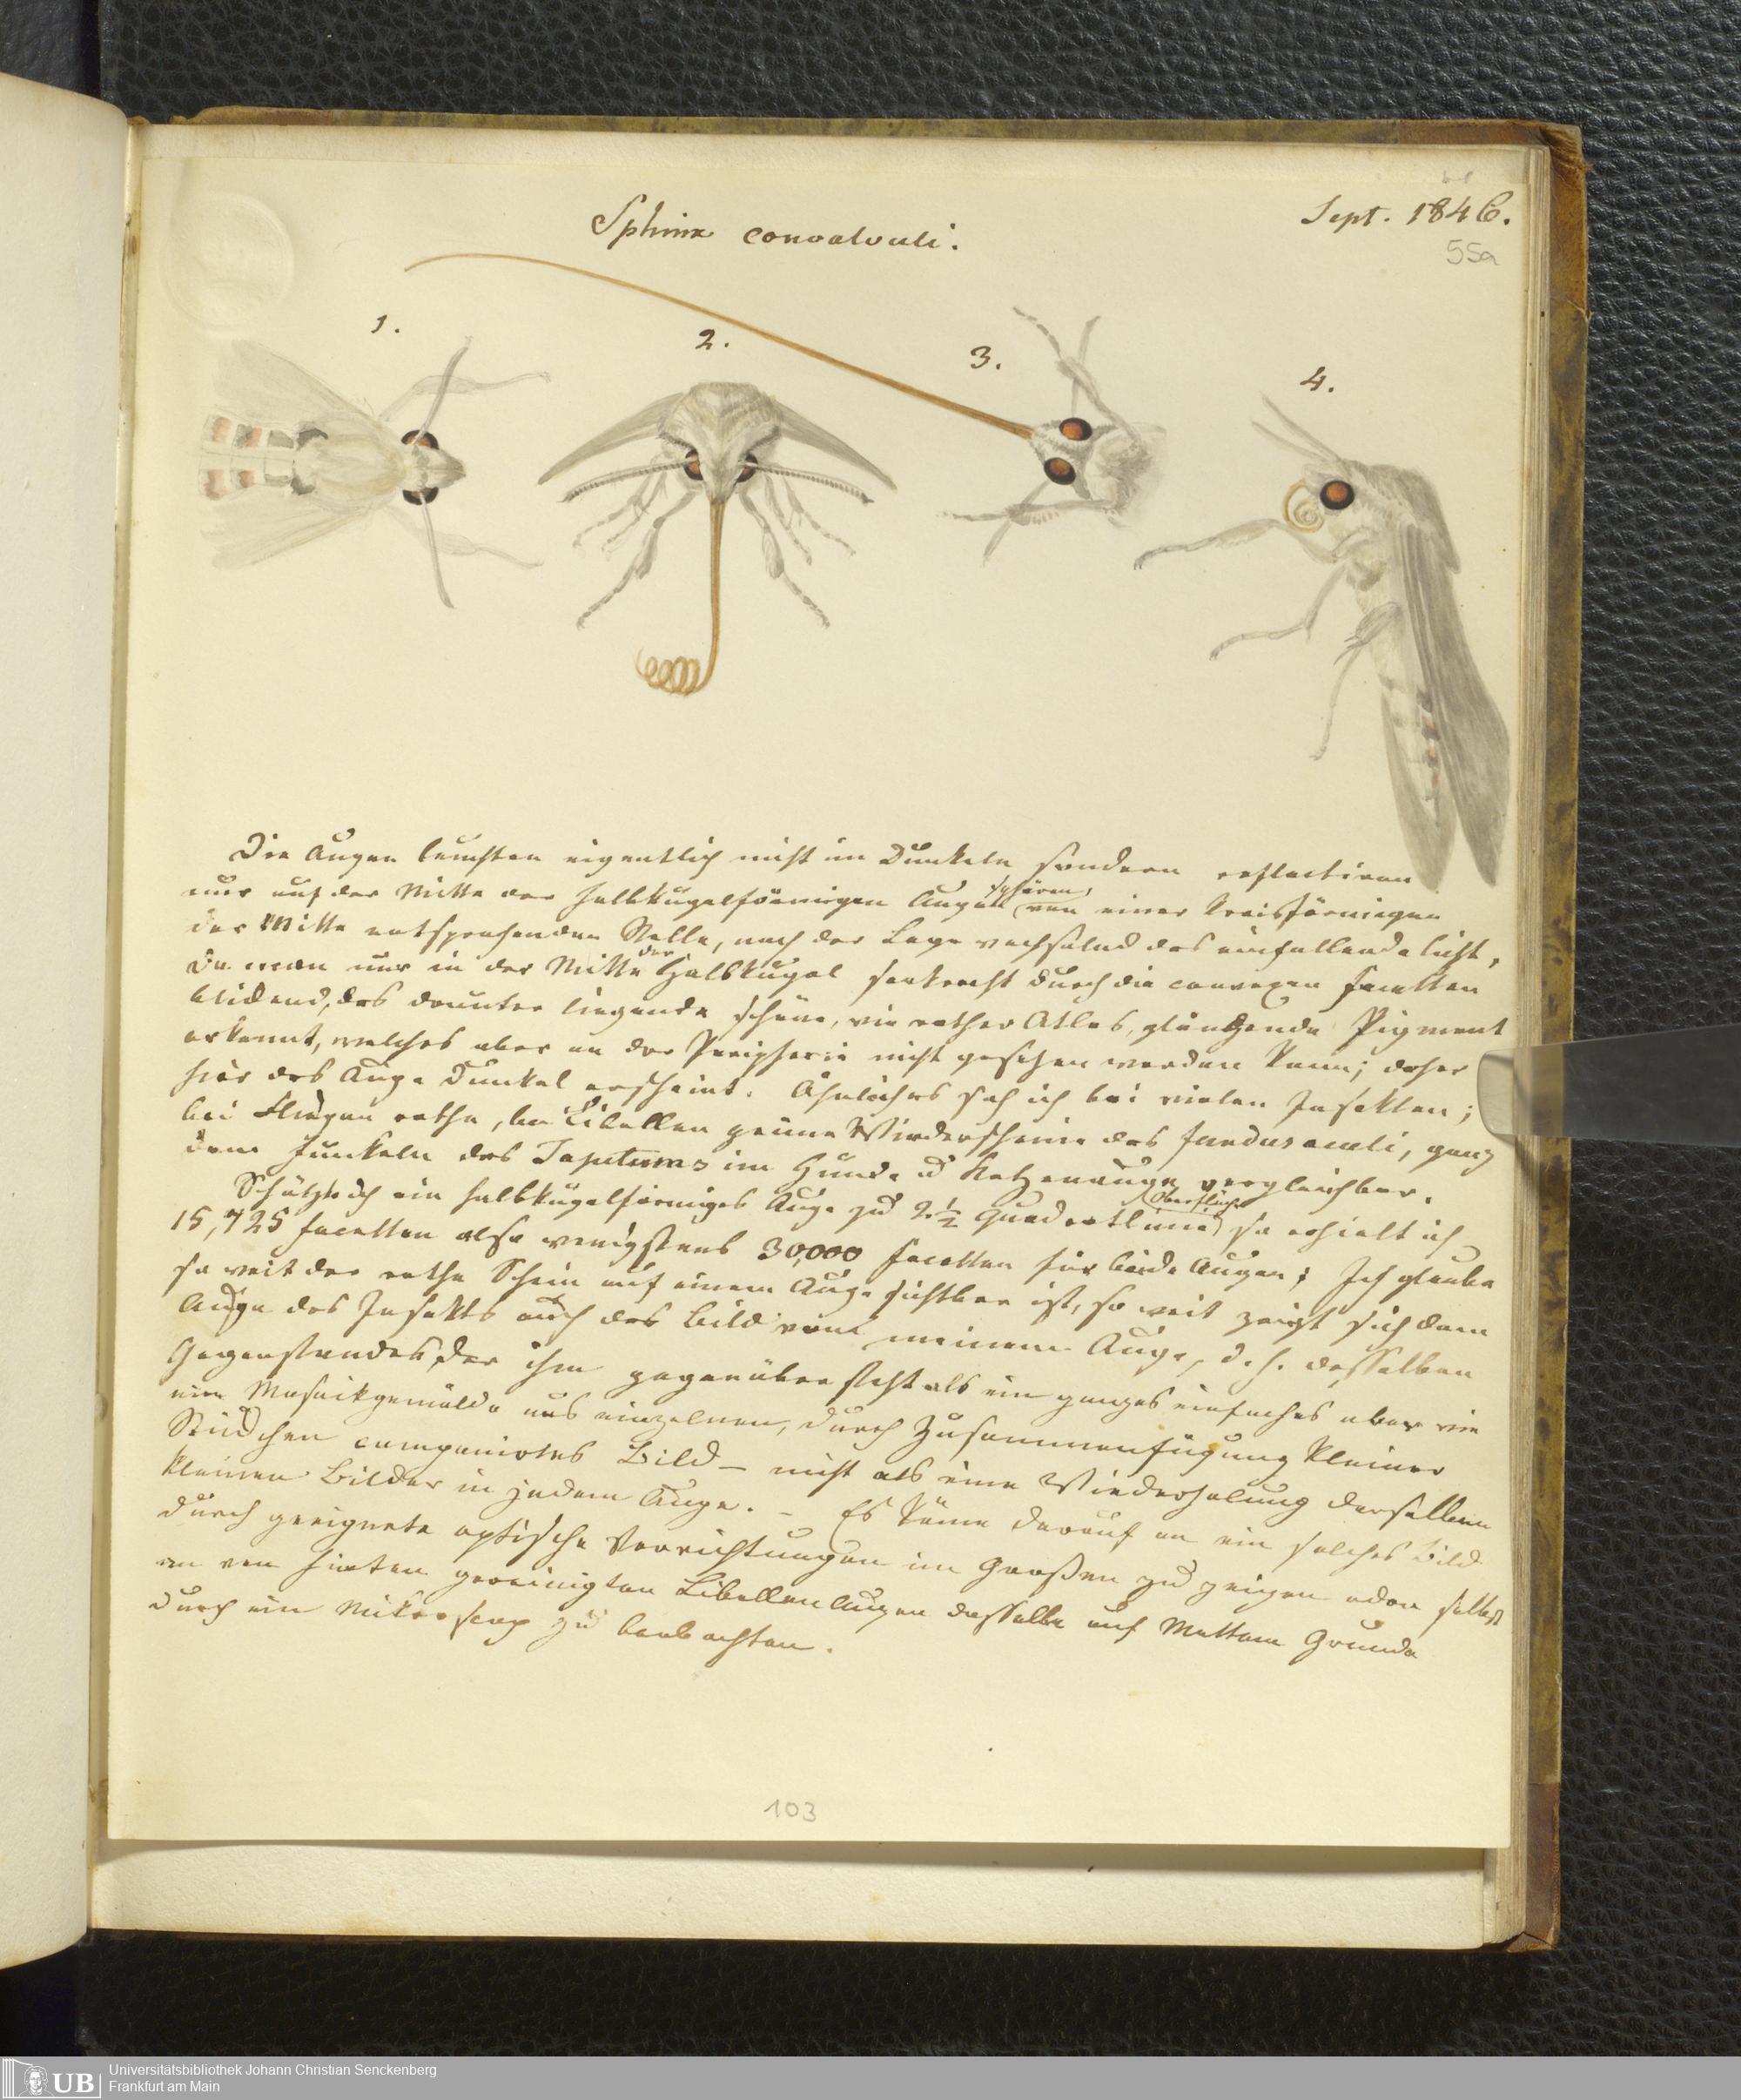 Sphinx convolvuli.
Sept. 1846.
55a
1.
2.
3.
4.
Die Augen leuchten eigentlich nicht im Dunkeln sondern reflectiren
nur auf der Mitte der halbkugelförmigen Augen sphären, von einer kreisförmigen
der Mitte entsprechenden Stelle, nach der Lage wechselnd das einfallende Licht,
da man nur in der Mitte der Halbkugel senkrecht durch die convexen Facetten
blickend, das drunter liegende schöne, wie rother Atlas, glänzende Pigment
erkennt, welches aber an der Peripherie nicht gesehen werden kann; daher
hier das Auge dunkel erscheint. Ähnliches sah ich bei vielen Insekten;
bei Fliegen rothe, bei Libellen grüne Wiederscheine des fundus oculi, ganz
dem Funkeln des Tapetums im Hunde u Katzenauge vergleichbar.
Schätzte ich ein halbkugelförmiges Auge zu 2 1/2 Quadratlinien Oberfläche, so erhielt ich
15,725 Facetten also wenigstens 30,000 Facetten für beide Augen; Ich glaube
so weit der rothe Schein auf einem Auge sichtbar ist, so weit zeigt sich dem
Auge des Insekts auch das Bild von meinem Auge, d. h. desselben
Gegenstandes, der ihm gegenüber steht als ein ganzes einfaches aber wie
ein Mosaikgemälde aus einzelnen, durch Zusammenfügung kleiner
Stückchen componirtes Bild – nicht als eine Wiederholung derselben
kleinen Bilder in jedem Auge. – Es käme darauf an ein solches Bild
durch geeignete optische Vorrichtungen im Großen zu zeigen oder selbst
an von hinten gereinigten Libellen Augen dasselbe auf Mattem Grunde
durch ein Mikroscop zu beobachten.
103
UB
Universitätsbibliothek Johann Christian Senckenberg
Frankfurt am Main